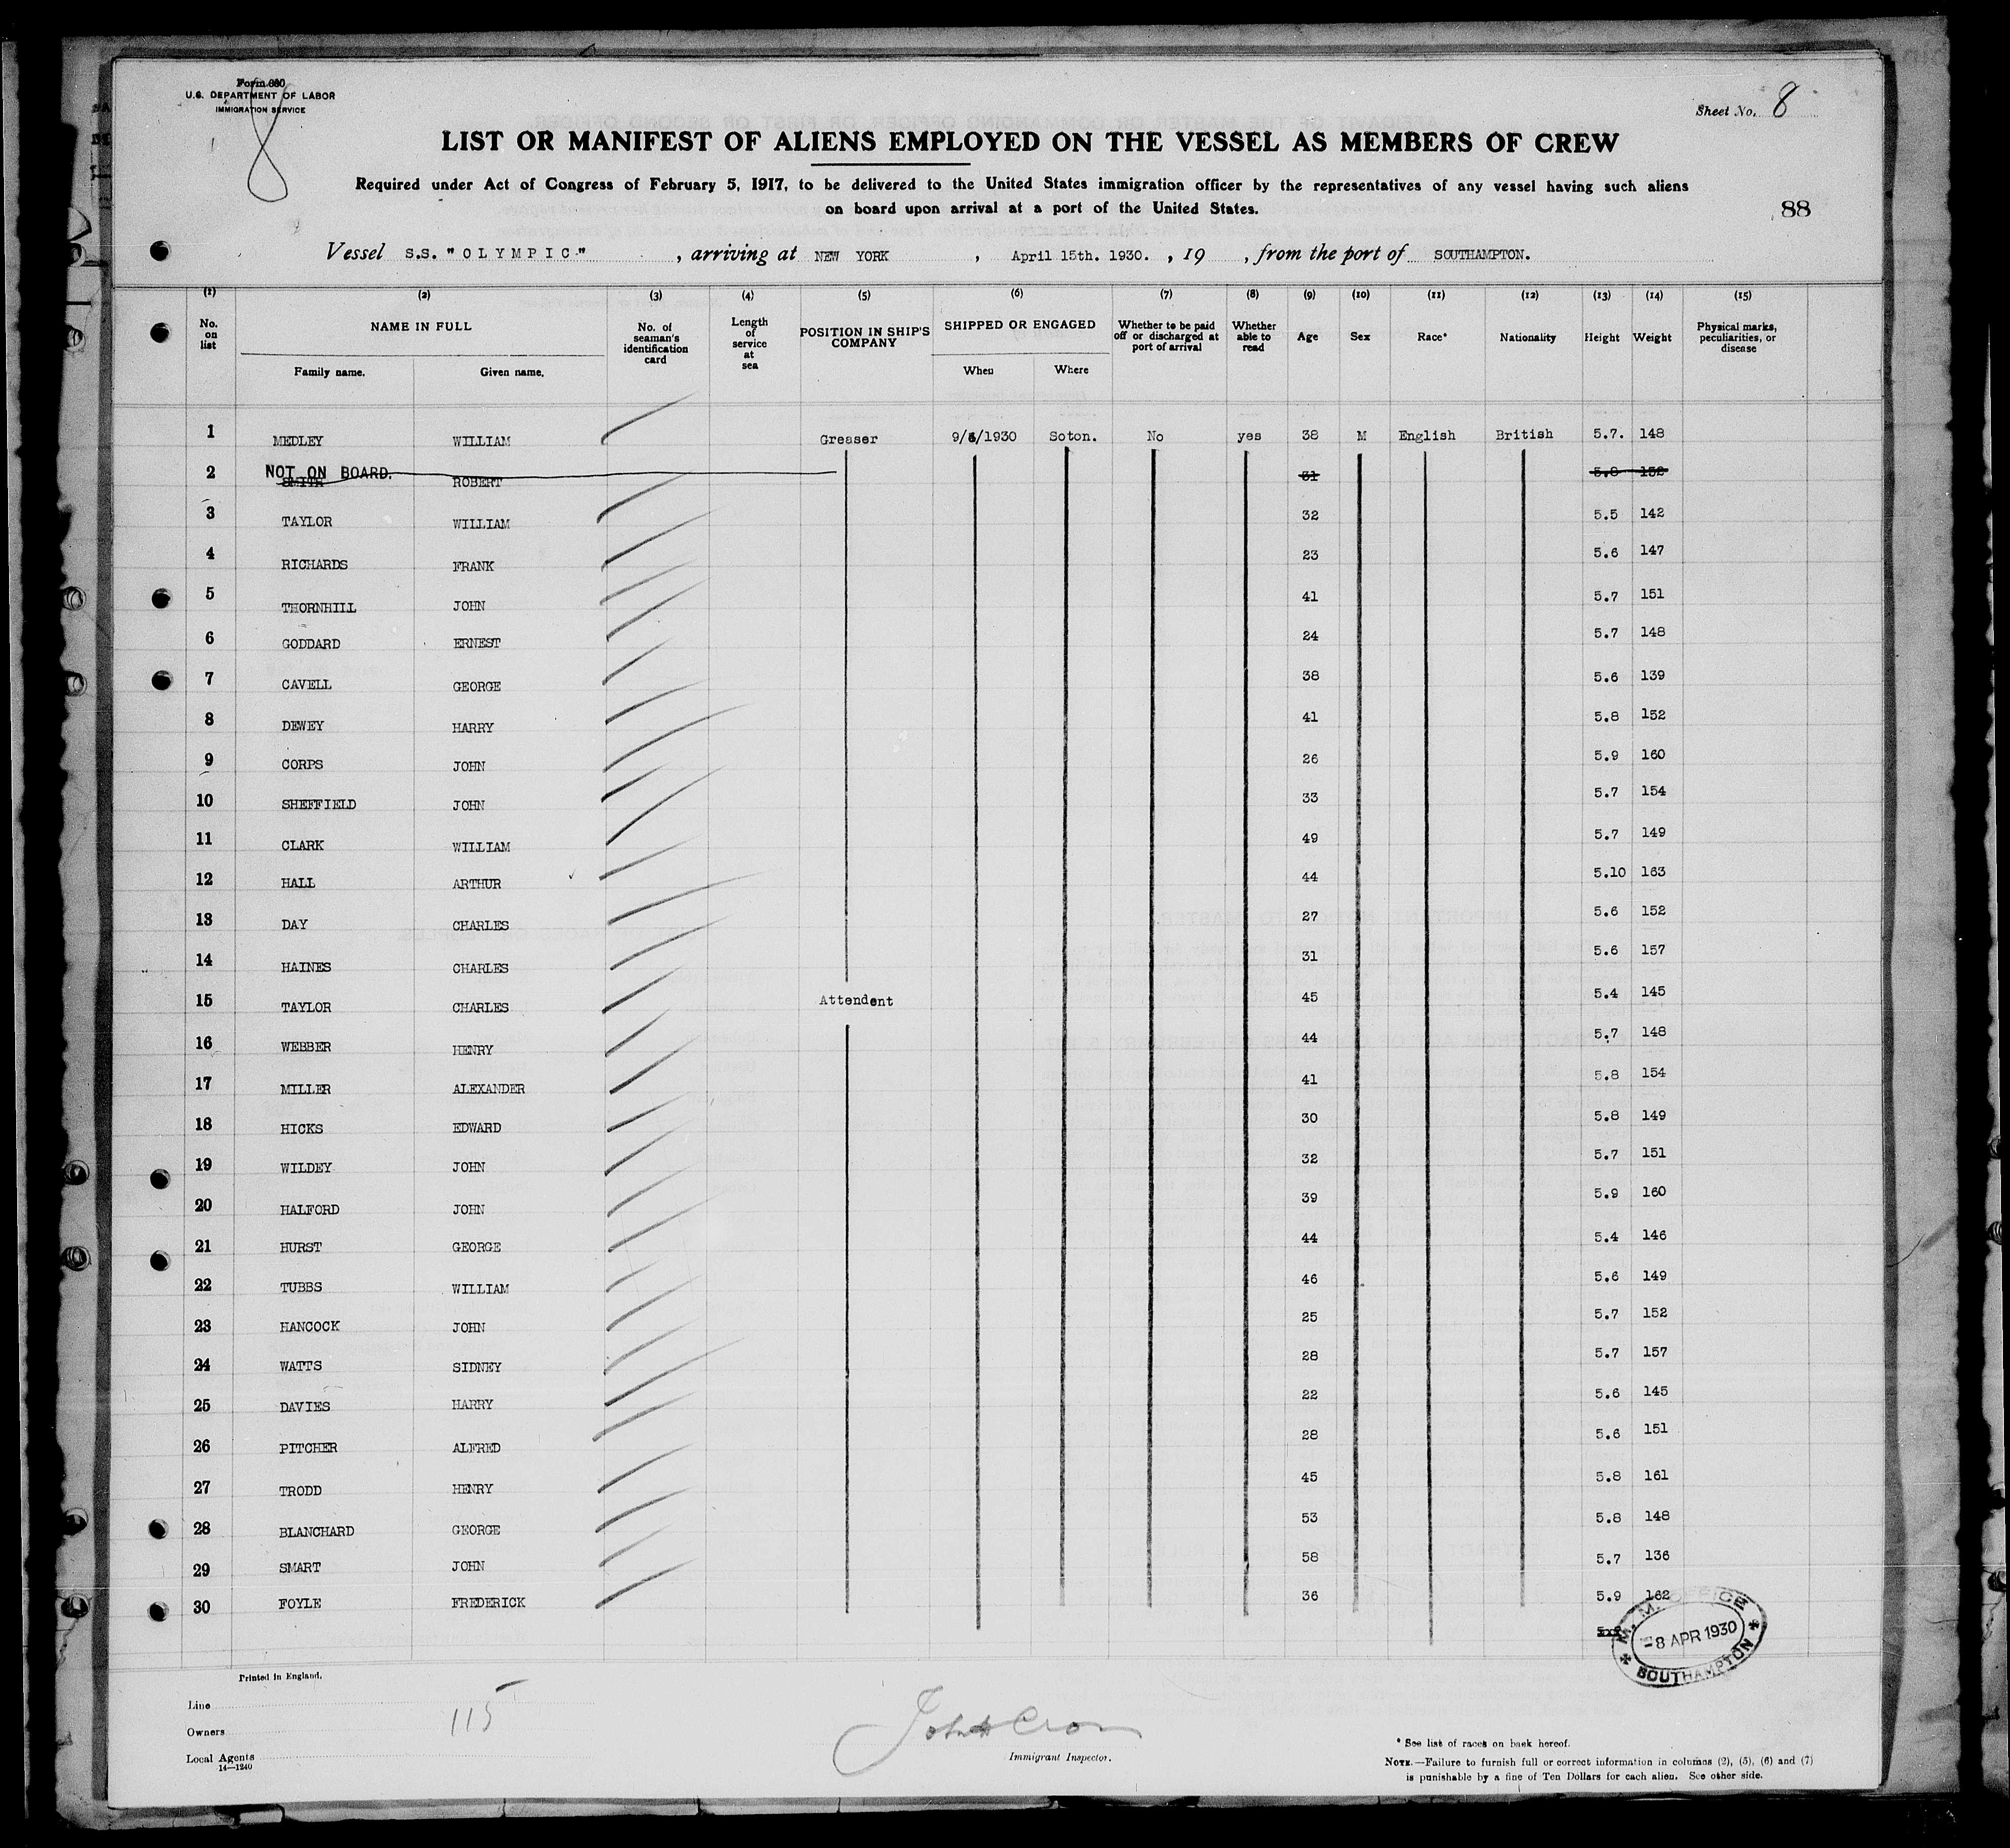 Form 680
U.S. DEPARTMENT OF LABOR
IMMIGRATION SERVICE
8
Sheet No. 8
LIST OR MANIFEST OF ALIENS EMPLOYED ON THE VESSEL AS MEMBERS OF CREW
Required under Act of Congress of February 5, 1917, to be delivered to the United States immigration officer by the representatives of any vessel having such aliens
on board upon arrival at a port of the United States.
88
Vessel S.S. "OLYMPIC" , arriving at NEW YORK , April 15th. 1930. , 19 , from the port of SOUTHAMPTON.
(1) (2) (3) (4) (5) (6) (7) (8) (9) (10) (11) (12) (13) (14) (15)
No. on list NAME IN FULL Family name. Given name. No. of seaman's identification card Length of service at sea POSITION IN SHIP'S COMPANY SHIPPED OR ENGAGED When Where Whether to be paid off or discharged at port of arrival Whether able to read Age Sex Race* Nationality Height Weight Physical marks, peculiarities, or disease
1 MEDLEY WILLIAM Greaser 9/ /1930 Soton. No yes 38 M English British 5.7. 148
2 NOT ON BOARD. SMITH ROBERT 31 5.8 152
3 TAYLOR WILLIAM 32 5.5 142
4 RICHARDS FRANK 23 5.6 147
5 THORNHILL JOHN 41 5.7 151
6 GODDARD ERNEST 24 5.7 148
7 CAVELL GEORGE 38 5.6 139
8 DEWEY HARRY 41 5.8 152
9 CORPS JOHN 26 5.9 160
10 SHEFFIELD JOHN 33 5.7 154
11 CLARK WILLIAM 49 5.7 149
12 HALL ARTHUR 44 5.10 163
13 DAY CHARLES 27 5.6 152
14 HAINES CHARLES 31 5.6 157
15 TAYLOR CHARLES Attendent 45 5.4 145
16 WEBBER HENRY 44 5.7 148
17 MILLER ALEXANDER 41 5.8 154
18 HICKS EDWARD 30 5.8 149
19 WILDEY JOHN 32 5.7 151
20 HALFORD JOHN 39 5.9 160
21 HURST GEORGE 44 5.4 146
22 TUBBS WILLIAM 46 5.6 149
23 HANCOCK JOHN 25 5.7 152
24 WATTS SIDNEY 28 5.7 157
25 DAVIES HARRY 22 5.6 145
26 PITCHER ALFRED 28 5.6 151
27 TRODD HENRY 45 5.8 161
28 BLANCHARD GEORGE 53 5.8 148
29 SMART JOHN 58 5.7 136
30 FOYLE FREDERICK 36 5.9 162
M. M. OFFICE
-8 APR 1930
SOUTHAMPTON
Printed in England.
Line
Owners
Local Agents
14—1240
115
John Cron
Immigrant Inspector.
* See list of races on back hereof.
NOTE.—Failure to furnish full or correct information in columns (2), (5), (6) and (7)
is punishable by a fine of Ten Dollars for each alien. See other side.